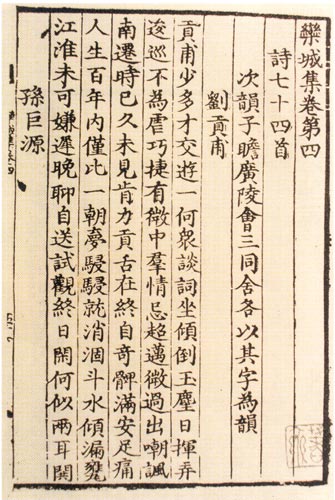 欒城集卷第四
詩七十四首
次韻子瞻廣陵會三同舍各以其字為韻
劉貢甫
貢甫少多才交遊一何衆談詞坐傾倒玉麈日揮弄
逡巡不為虐巧捷有微中羣情忌超邁微過出嘲諷
南遷時已久未見肯力貢舌在終自奇髀滿安足痛
人生百年內僅此一朝夢駸駸就消涸斗水傾漏甕
江淮未可嫌遲晚聊自送試觀終日何似兩耳
孫巨源